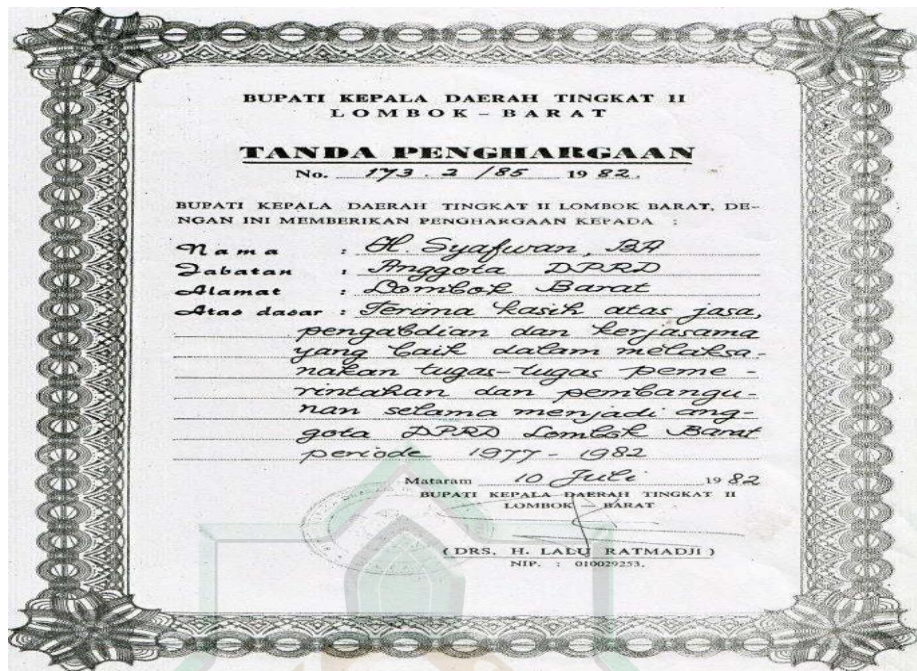 BUPATI KEPALA DAERAH TINGKAT II
LOMBOK - BARAT
TANDA PENGHARGAAN
No. 173.2/85 1982.
BUPATI KEPALA DAERAH TINGKAT II LOMBOK BARAT, DE-
NGAN INI MEMBERIKAN PENGHARGAAN KEPADA :
Nama : H. Syafwan, BA
Jabatan : Anggota DPRD
Alamat : Lombok Barat
Atas dasar : Terima kasih atas jasa,
pengabdian dan kerjasama
yang baik dalam melaksa-
nakan tugas-tugas peme-
rintahan dan pembangu-
nan selama menjadi ang-
gota DPRD Lombok Barat
periode 1977 - 1982
Mataram 10 Juli 1982
BUPATI KEPALA DAERAH TINGKAT II
LOMBOK - BARAT
(DRS. H. LALU RATMADJI)
NIP. : 010029253.